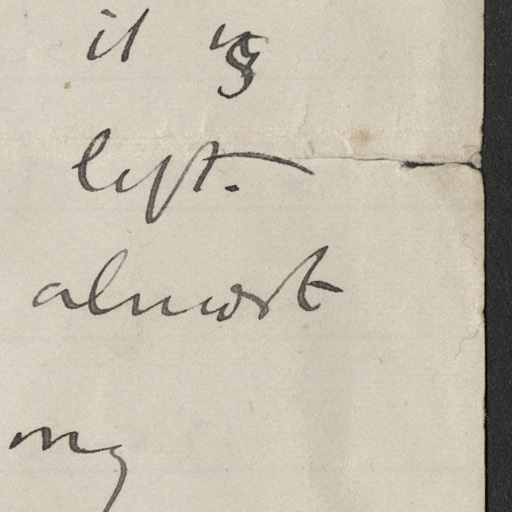 it is
left.
almost
my